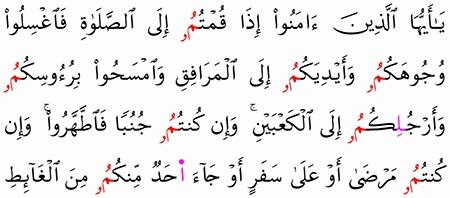 يَـٰأَيُّهَا ٱلَّذِينَ ءَامَنُواْ إِذَا قُمْتُمُۥ إِلَى ٱلصَّلَوٰةِ فَٱغْسِلُواْ
وُجُوهَكُمُۥ وَأَيْدِيَكُمُۥ إِلَى ٱلْمَرَافِقِ وَٱمْسَحُواْ بِرُءُوسِكُمُۥ
وَأَرْجُلِكُمُۥ إِلَى ٱلْكَعْبَيْنِۚ وَإِن كُنتُمُۥ جُنُبًا فَٱطَّهَّرُواْۚ وَإِن
كُنتُمُۥ مَرْضَىٰ أَوْ عَلَىٰ سَفَرٍ أَوْ جَآءَ احَدٌ مِنكُمُۥ مِنَ ٱلْغَآئِطِ